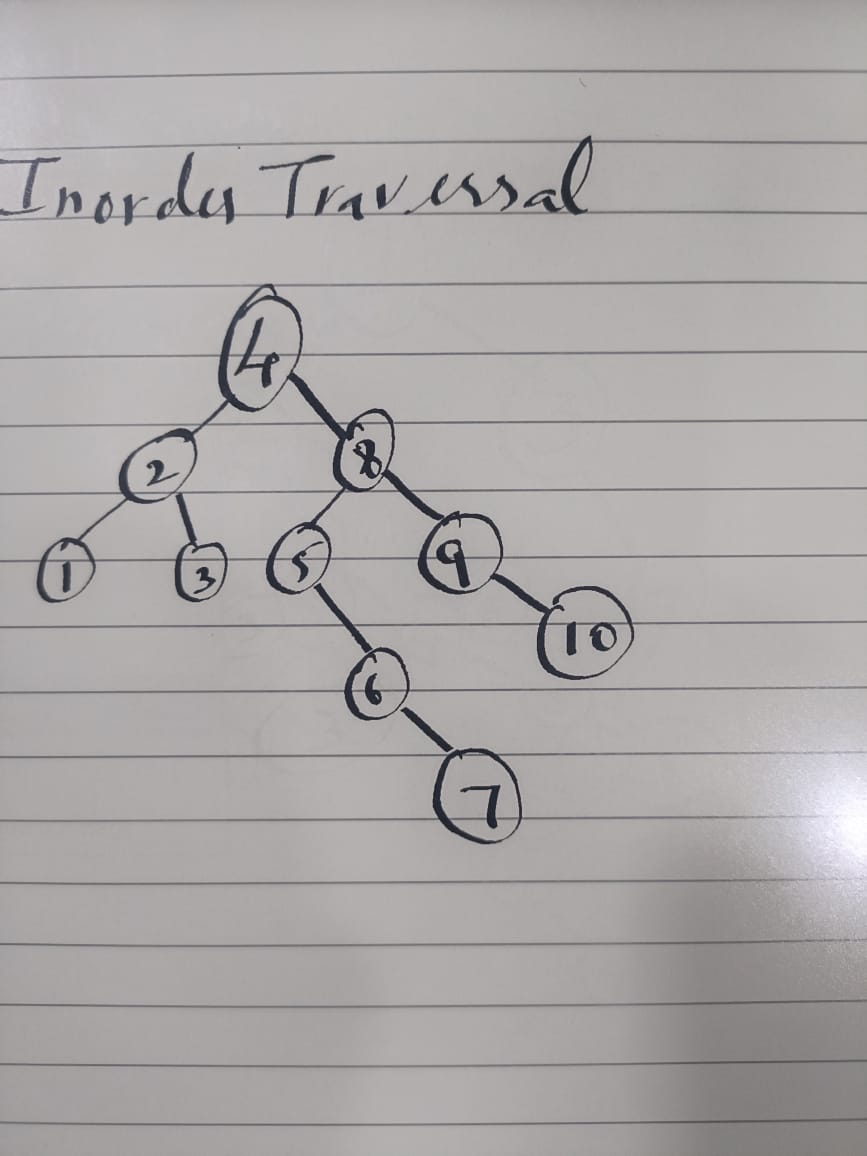 Inorder Traversal
4
2 8
1 3 5 9
10
6
7